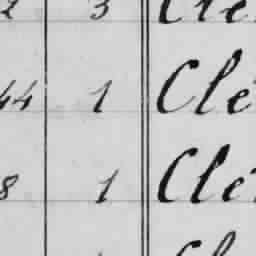 2 3 Cle
44 1 Cle
8 1 Cle